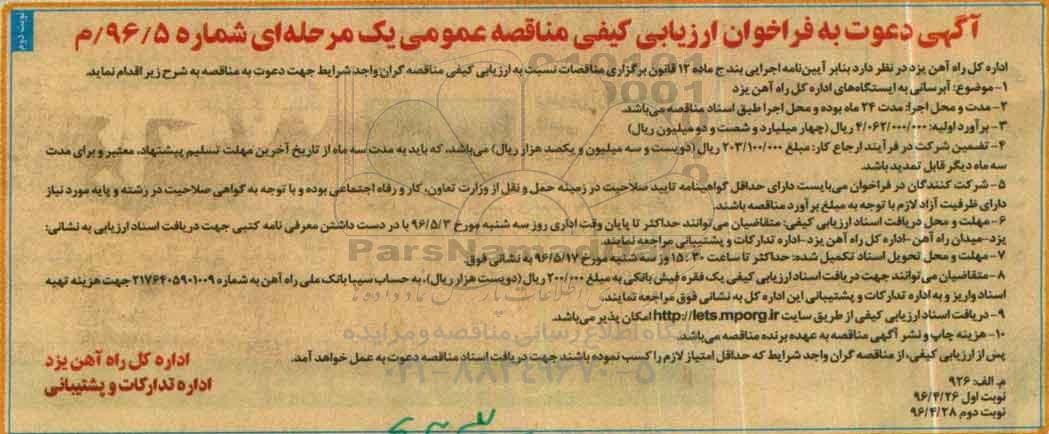 نوبت دوم
آگهی دعوت به فراخوان ارزیابی کیفی مناقصه عمومی یک مرحله‌ای شماره ۹۶/۵/م
اداره کل راه آهن یزد در نظر دارد بنابر آیین‌نامه اجرایی بند ج ماده ۱۲ قانون برگزاری مناقصات نسبت به ارزیابی کیفی مناقصه گران واجد شرایط جهت دعوت به مناقصه به شرح زیر اقدام نماید.
۱- موضوع: آبرسانی به ایستگاه‌های اداره کل راه آهن یزد
۲- مدت و محل اجرا: مدت ۲۴ ماه بوده و محل اجرا طبق اسناد مناقصه می‌باشد.
۳- برآورد اولیه: ۴/۰۶۲/۰۰۰/۰۰۰ ریال (چهار میلیارد و شصت و دو میلیون ریال)
۴- تضمین شرکت در فرآیند ارجاع کار: مبلغ ۲۰۳/۱۰۰/۰۰۰ ریال (دویست و سه میلیون و یکصد هزار ریال) می‌باشد، که باید به مدت سه ماه از تاریخ آخرین مهلت تسلیم پیشنهاد، معتبر و برای مدت
سه ماه دیگر قابل تمدید باشد.
۵- شرکت کنندگان در فراخوان می‌بایست دارای حداقل گواهینامه تایید صلاحیت در زمینه حمل و نقل از وزارت تعاون، کار و رفاه اجتماعی بوده و با توجه به گواهی صلاحیت در رشته و پایه مورد نیاز
دارای ظرفیت آزاد لازم با توجه به مبلغ برآورد مناقصه باشند.
۶- مهلت و محل دریافت اسناد ارزیابی کیفی: متقاضیان می‌توانند حداکثر تا پایان وقت اداری روز سه شنبه مورخ ۹۶/۵/۳ با در دست داشتن معرفی نامه کتبی جهت دریافت اسناد ارزیابی به نشانی:
یزد-میدان راه آهن -اداره کل راه آهن یزد-اداره تدارکات و پشتیبانی مراجعه نمایند.
۷- مهلت و محل تحویل اسناد تکمیل شده: حداکثر تا ساعت ۱۵:۳۰ روز سه شنبه مورخ ۹۶/۵/۱۷ به نشانی فوق
۸- متقاضیان می‌توانند جهت دریافت اسناد ارزیابی کیفی یک فقره فیش بانکی به مبلغ ۲۰۰/۰۰۰ ریال (دویست هزار ریال)، به حساب سیبا بانک ملی راه آهن به شماره ۲۱۷۶۴۰۵۹۰۱۰۰۹ جهت هزینه تهیه
اسناد واریز و به اداره تدارکات و پشتیبانی این اداره کل به نشانی فوق مراجعه نمایند.
۹- دریافت اسناد ارزیابی کیفی از طریق سایت http://iets.mporg.ir امکان پذیر می‌باشد.
۱۰- هزینه چاپ و نشر آگهی مناقصه به عهده برنده مناقصه می‌باشد.
پس از ارزیابی کیفی، از مناقصه گران واجد شرایط که حداقل امتیاز لازم را کسب نموده باشند جهت دریافت اسناد مناقصه دعوت به عمل خواهد آمد.
م. الف: ۹۲۶
نوبت اول ۹۶/۴/۲۶
نوبت دوم ۹۶/۴/۲۸
اداره کل راه آهن یزد
اداره تدارکات و پشتیبانی
ParsNamadData
پایگاه اطلاع رسانی مناقصه و مزایده
۰۲۱-۸۸۳۴۹۶۷۰-۵